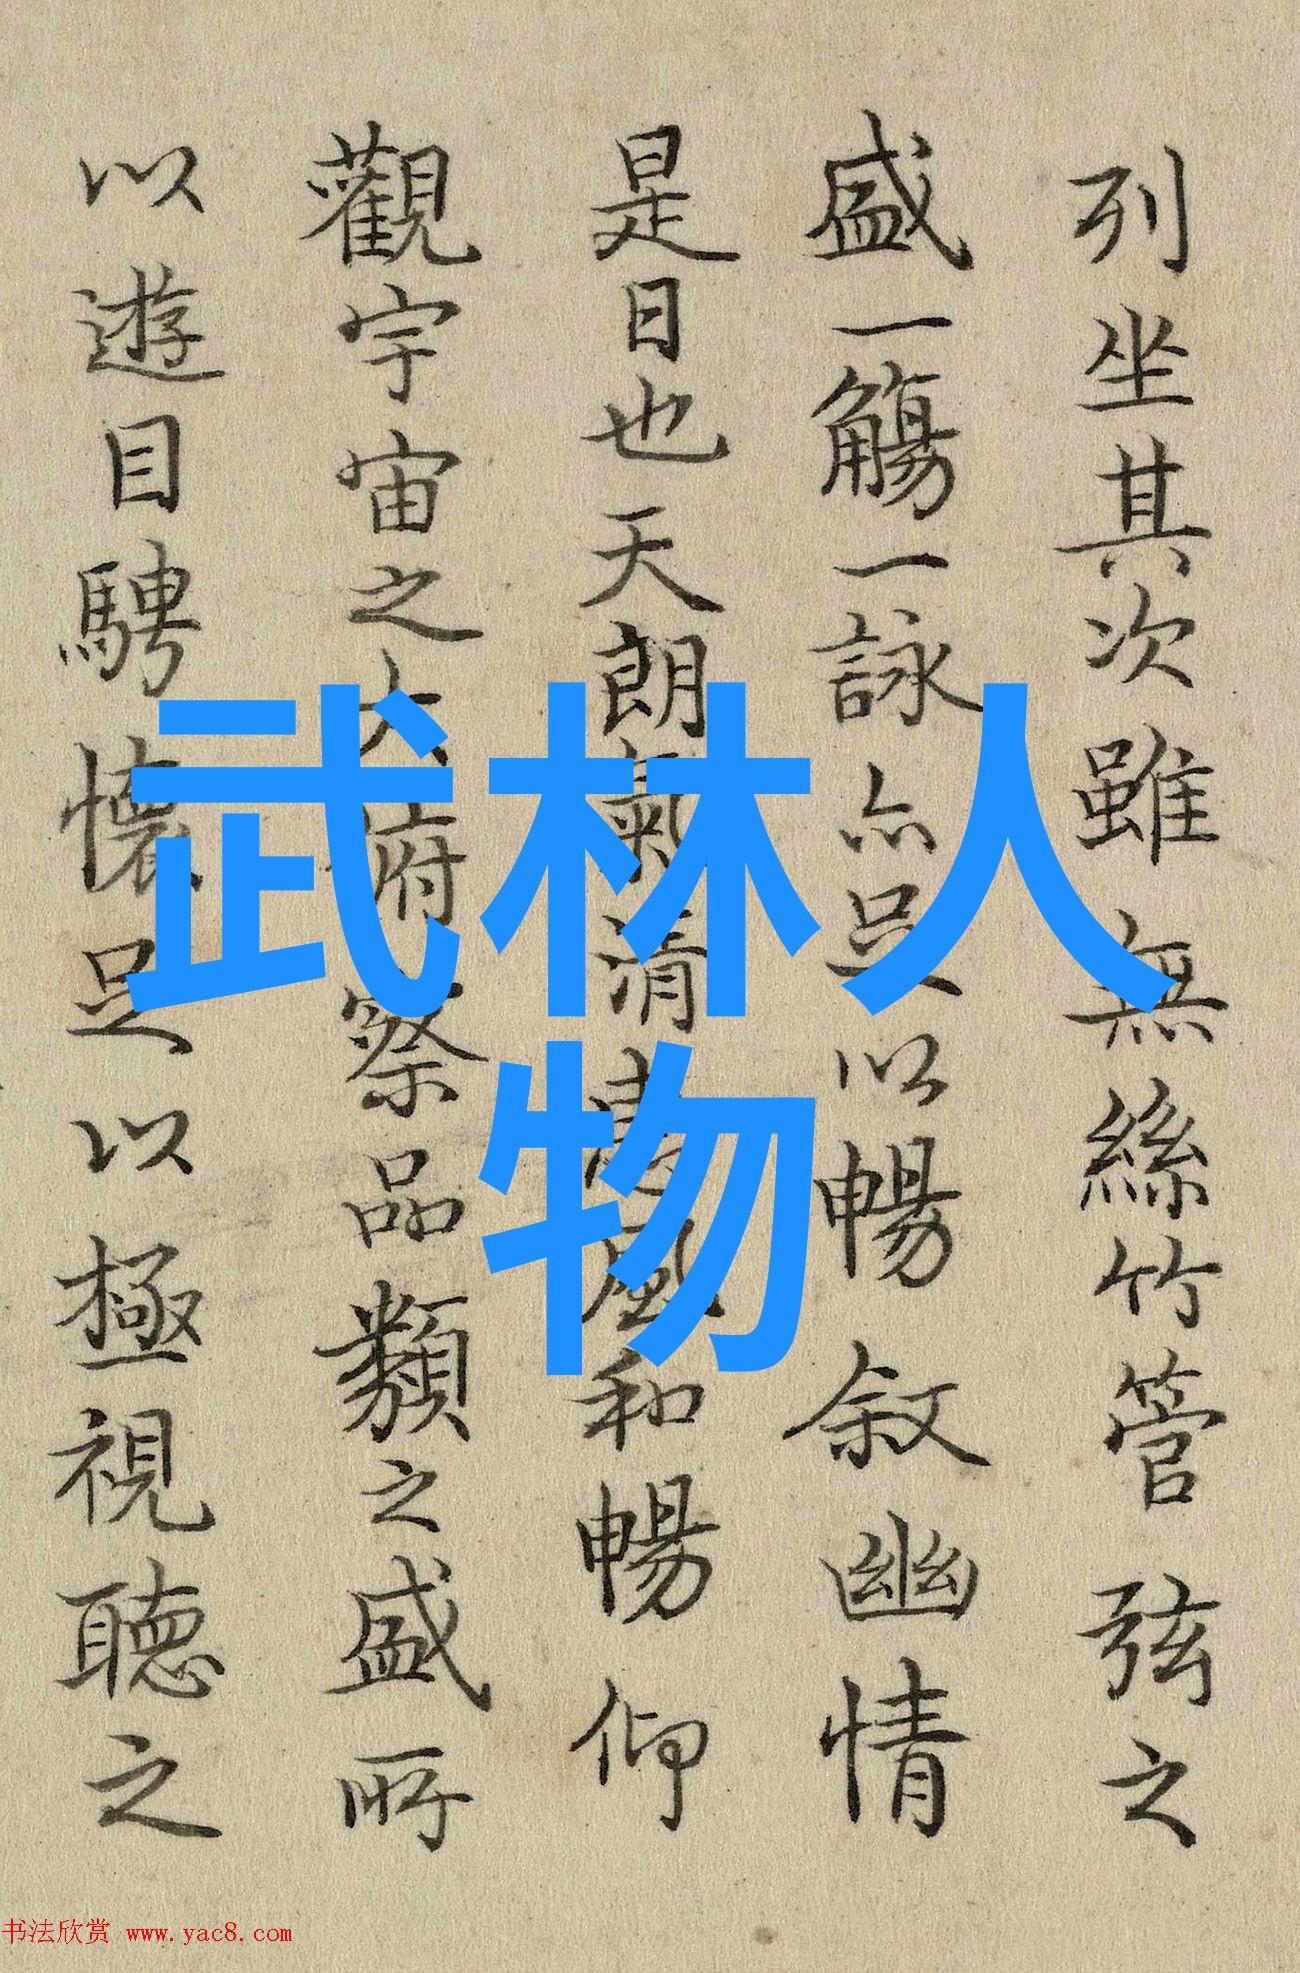 列坐其次雖無絲竹管弦之
盛一觴一詠亦足以暢叙幽情
是日也天朗氣清惠風和暢仰
觀宇宙之大俯察品類之盛所
以遊目騁懷足以極視聽之
武林人
物
书法欣赏 www.yac8.com